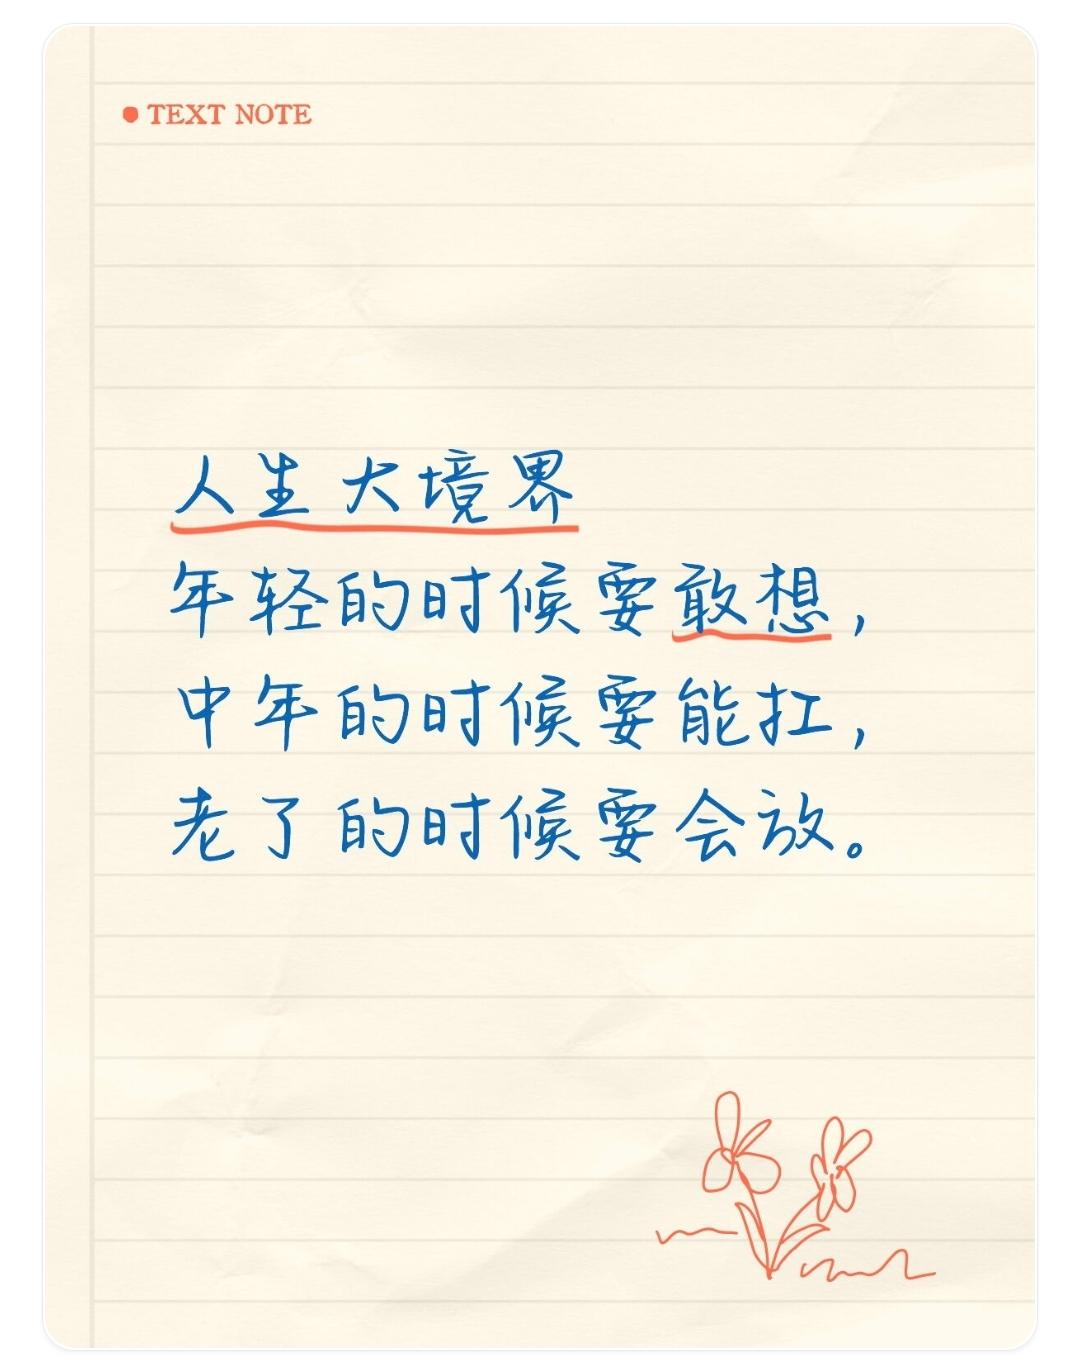 TEXT NOTE
人生大境界
年轻的时候要敢想，
中年的时候要能扛，
老了的时候要会放。